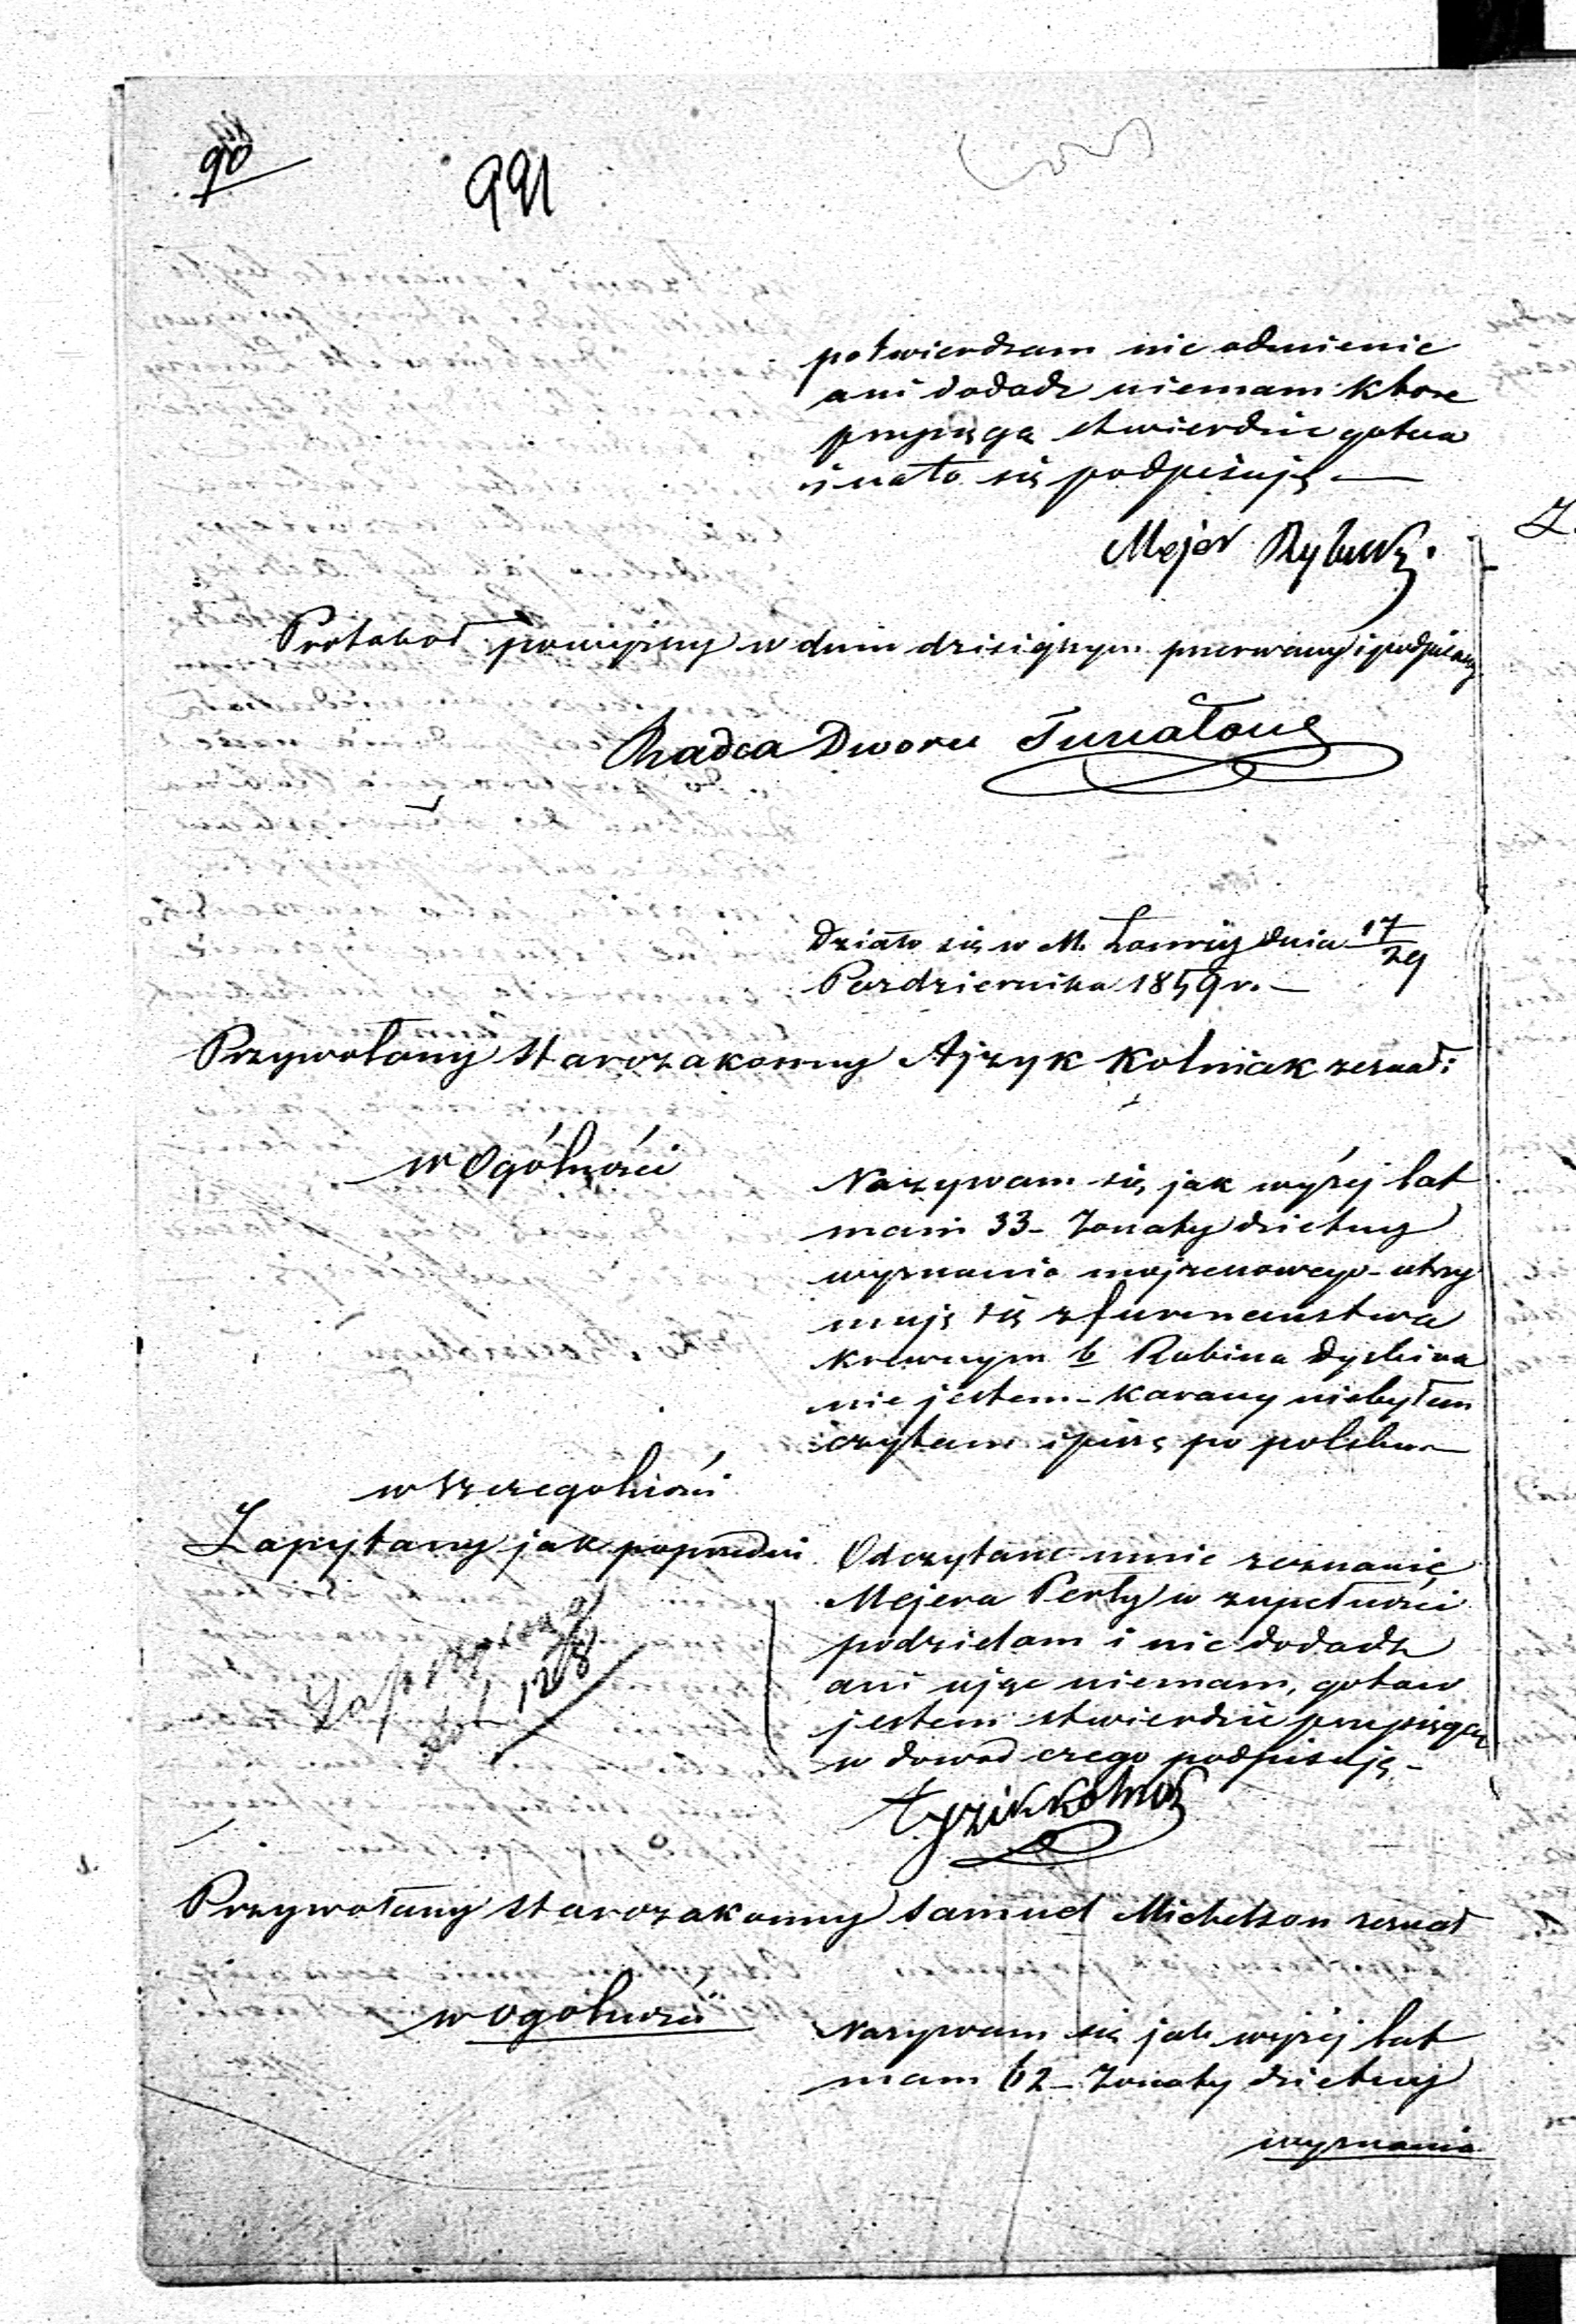 90
991
potwierdzam nic odmienic
ani dodadz niemam które
przysięgą stwierdzic gotów
i na to się podpisuję —
Mejer Rybusk.
Protokoł powyższy w dniu dzisiejszym przerwany i podpisany
Radca Dworu
Działo się w M. Łomży dnia 17/29
Pazdziernika 1859 r. —
Przywołany Starozakonny Ajzyk Kolniak zeznał:
w Ogólności
Nazywam się jak wyżej lat
mam 33 - Żonaty dzietny
wyznania mojżeszowego - utrzy
muję się z furmanstwa
krewnym b Rabina Dyskina
nie jestem - karany niebyłem
czytam i piszę po polsku —
w Szczególnosci
Zapytany jak poprzedni
Odczytane mnie zeznanie
Mejera Perły w zupełności
podzielam i nic dodadz
ani ująć niemam, gotow
jestem stwierdzić przysięgą
w dowod czego podpisuję -
Zaprzysiężony
128
Ayzik Kolniak
Przywołany Starozakonny Samuel Michelson zeznał
w ogolnosci
Nazywam się jak wyżej lat
mam 62 - Żonaty dzietny
wyznania